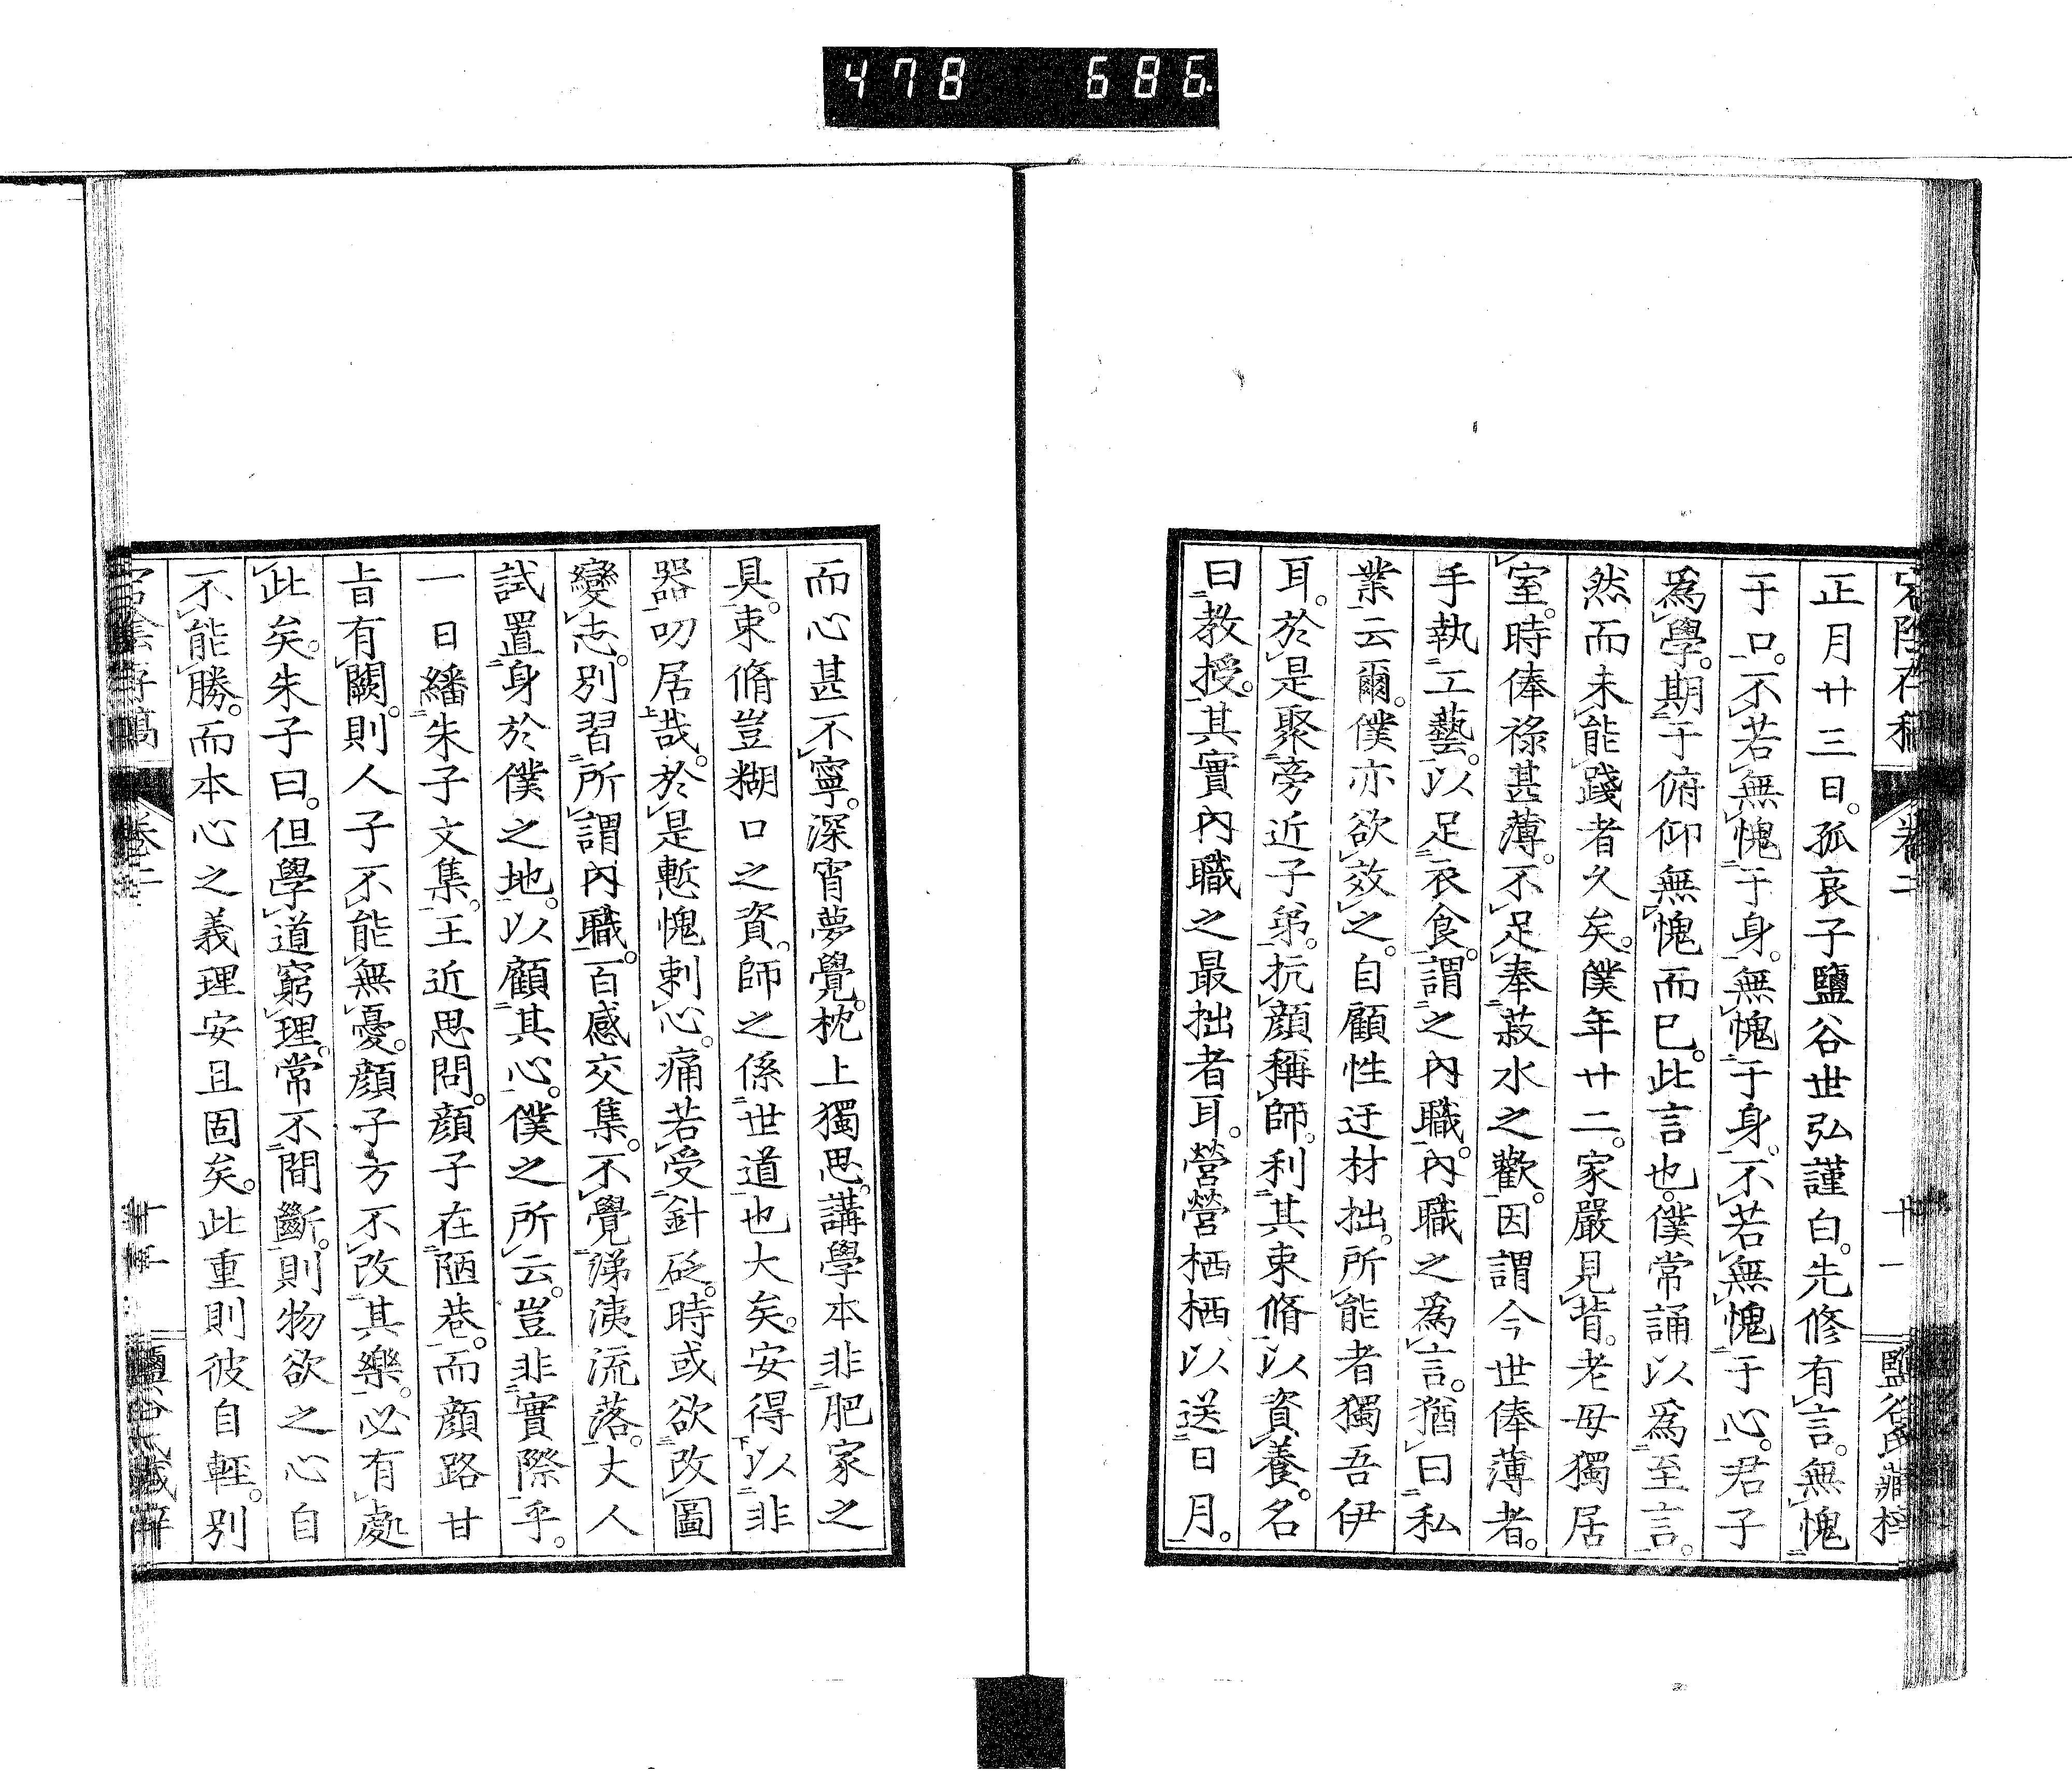 478 686
宕陰存稿 卷二 十一 鹽谷氏藏梓
正月廿三日。孤哀子鹽谷世弘謹白。先修有言。無愧
于口。不若無愧于身。無愧于身。不若無愧于心。君子
爲學。期于俯仰無愧而已。此言也。僕常誦以爲至言。
然而未能踐者久矣。僕年廿二。家嚴見背。老母獨居
室。時俸祿甚薄。不足奉菽水之歡。因謂今世俸薄者。
手執工藝。以足衣食。謂之內職。內職之爲言。猶曰私
業云爾。僕亦欲效之。自顧性迂材拙。所能者獨吾伊
耳。於是聚旁近子弟。抗顏稱師。利其束脩。以資養。名
曰教授。其實內職之最拙者耳。營營栖栖以送日月。
而心甚不寧。深宵夢覺。枕上獨思。講學本非肥家之
具。束脩豈糊口之資。師之係世道也大矣。安得以非
器叨居哉。於是慙愧刺心。痛若受針砭。時或欲改圖
變志。別習所謂內職。百感交集。不覺涕洟流落。大人
試置身於僕之地。以顧其心。僕之所云。豈非實際乎。
一日繙朱子文集。王近思問。顏子在陋巷。而顏路甘
旨有闕。則人子不能無憂。顏子方不改其樂。必有處
此矣。朱子曰。但學道窮理。常不間斷。則物欲之心自
不能勝。而本心之義理安且固矣。此重則彼自輕。別
宕陰存稿 卷二